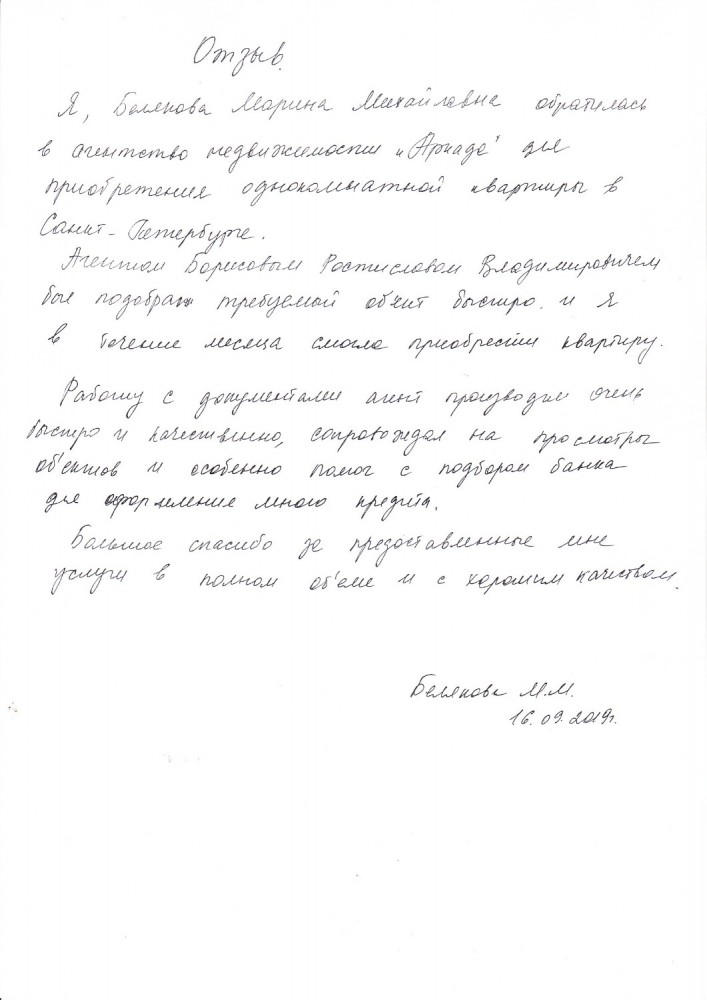 Отзыв.
Я, Белякова Марина Михайлавна обратилась
в агентство недвижимости „Аркада" для
приобретения однокомнатной квартиры в
Санкт-Петербурге.
Агентом Борисовым Ростиславом Владимировичем
был подобран требуемой об'ект быстро. и я
в течение месяца смогла приобрести квартиру.
Работу с документами агент производил очень
быстро и качественно, сопровождал на просмотры
об'ектов и особенно помог с подбором банка
для оформление много кредита.
Большое спасибо за предоставленные мне
услуги в полном об'еме и с хорошим качеством.
Белякова М.М.
16.09.2019г.